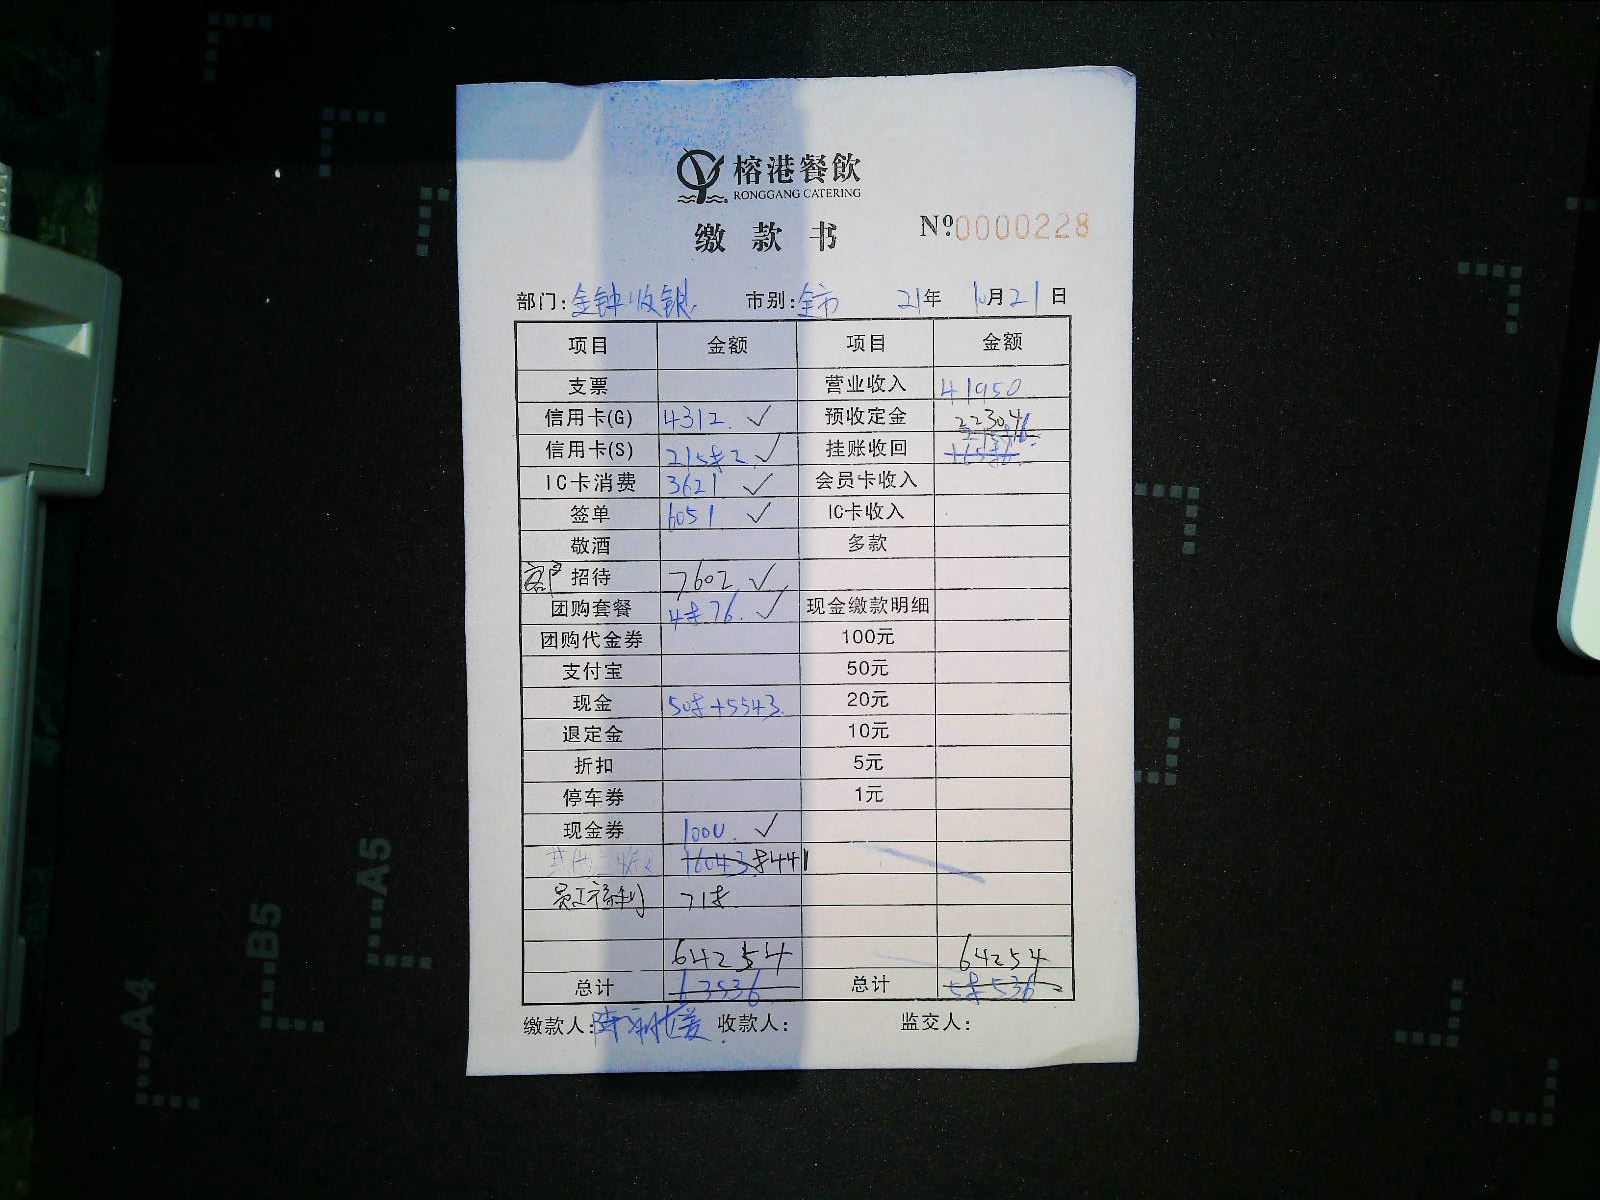 榕港餐飲
RONGGANG CATERING
缴款书 Nº 0000228
部门: 金钟收银 市别: 全市 21年 10月21日
项目 金额 项目 金额
支票 营业收入 41950
信用卡(G) 4312. ✓ 预收定金 22304
信用卡(S) 21582 ✓ 挂账收回
IC卡消费 3621 ✓ 会员卡收入
签单 6051 ✓ IC卡收入
敬酒 多款
招待 7602 ✓
团购套餐 4876. ✓ 现金缴款明细
团购代金券 100元
支付宝 50元
现金 508+5543. 20元
退定金 10元
折扣 5元
停车券 1元
现金券 1000. ✓
8441
员工福利 718
64254 64254
总计 63536 总计 58536
缴款人: 收款人: 监交人:
A4
B5
A5